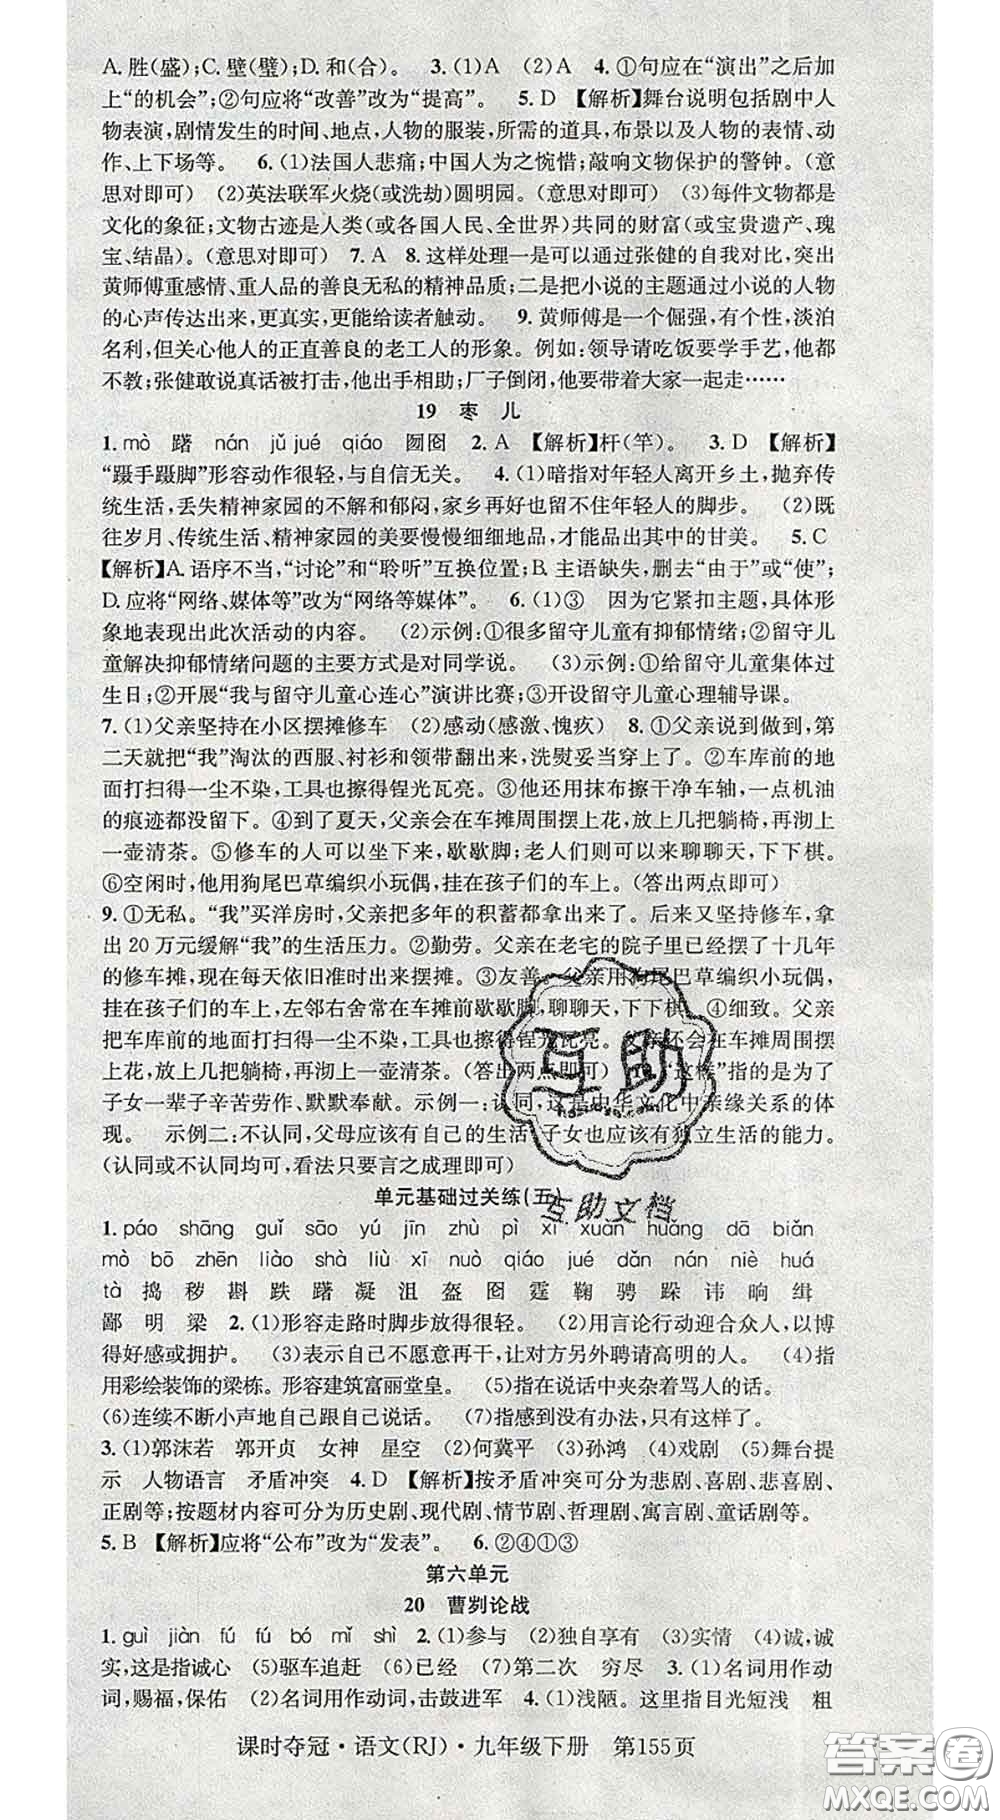 A.胜(盛);C.壁(璧);D.和(合)。 3.(1)A (2)A 4.①句应在“演出”之后加
上“的机会”;②句应将“改善”改为“提高”。 5.D 【解析】舞台说明包括剧中人
物表演,剧情发生的时间、地点,人物的服装,所需的道具,布景以及人物的表情、动
作、上下场等。 6.(1)法国人悲痛;中国人为之惋惜;敲响文物保护的警钟。(意
思对即可) (2)英法联军火烧(或洗劫)圆明园。(意思对即可) (3)每件文物都是
文化的象征;文物古迹是人类(或各国人民、全世界)共同的财富(或宝贵遗产、瑰
宝、结晶)。(意思对即可) 7.A 8.这样处理一是可以通过张健的自我对比,突出
黄师傅重感情、重人品的善良无私的精神品质;二是把小说的主题通过小说的人物
的心声传达出来,更真实,更能给读者触动。 9.黄师傅是一个倔强,有个性,淡泊
名利,但关心他人的正直善良的老工人的形象。例如:领导请吃饭要学手艺,他都
不教;张健敢说真话被打击,他出手相助;厂子倒闭,他要带着大家一起走……
19 枣 儿
1.mò 躇 nán jǔ jué qiáo 囫囵 2.A 【解析】杆(竿)。 3.D 【解析】
“蹑手蹑脚”形容动作很轻,与自信无关。 4.(1)暗指对年轻人离开乡土,抛弃传
统生活,丢失精神家园的不解和郁闷,家乡再好也留不住年轻人的脚步。 (2)既
往岁月、传统生活、精神家园的美要慢慢细细地品,才能品出其中的甘美。 5.C
【解析】A.语序不当,“讨论”和“聆听”互换位置;B.主语缺失,删去“由于”或“使”;
D.应将“网络、媒体等”改为“网络等媒体”。 6.(1)③ 因为它紧扣主题,具体形
象地表现出此次活动的内容。 (2)示例:①很多留守儿童有抑郁情绪;②留守儿
童解决抑郁情绪问题的主要方式是对同学说。 (3)示例:①给留守儿童集体过
生日;②开展“我与留守儿童心连心”演讲比赛;③开设留守儿童心理辅导课。
7.(1)父亲坚持在小区摆摊修车 (2)感动(感激、愧疚) 8.①父亲说到做到,第
二天就把“我”淘汰的西服、衬衫和领带翻出来,洗熨妥当穿上了。②车库前的地
面打扫得一尘不染,工具也擦得锃光瓦亮。③他还用抹布擦干净车轴,一点机油
的痕迹都没留下。④到了夏天,父亲会在车摊周围摆上花,放上几把躺椅,再沏上
一壶清茶。⑤修车的人可以坐下来,歇歇脚;老人们则可以来聊聊天,下下棋。
⑥空闲时,他用狗尾巴草编织小玩偶,挂在孩子们的车上。(答出两点即可)
9.①无私。“我”买洋房时,父亲把多年的积蓄都拿出来了。后来又坚持修车,拿
出20万元缓解“我”的生活压力。②勤劳。父亲在老宅的院子里已经摆了十几年
的修车摊,现在每天依旧准时出来摆摊。③友善。父亲用狗尾巴草编织小玩偶,
挂在孩子们的车上,左邻右舍常在车摊前歇歇脚,聊聊天,下下棋。④细致。父亲
把车库前的地面打扫得一尘不染,工具也擦得锃光瓦亮。父亲还会在车摊周围摆
上花,放上几把躺椅,再沏上一壶清茶。(答出两点即可) 10.“这样”指的是为了
子女一辈子辛苦劳作、默默奉献。示例一:认同,这是中华文化中亲缘关系的体
现。 示例二:不认同,父母应该有自己的生活,子女也应该有独立生活的能力。
(认同或不认同均可,看法只要言之成理即可)
单元基础过关练(五)
1.páo shāng guǐ sāo yú jīn zhù pì xì xuàn huǎng dā biǎn
mò bō zhēn liào shà liù xī nuò qiáo jué dǎn nán niè huá
tà 捣 秽 斟 跌 躇 凝 沮 盔 囵 霆 鞠 骋 跺 讳 晌 缉
鄙 明 梁 2.(1)形容走路时脚步放得很轻。 (2)用言论行动迎合众人,以博
得好感或拥护。 (3)表示自己不愿意再干,让对方另外聘请高明的人。 (4)指
用彩绘装饰的梁栋。形容建筑富丽堂皇。 (5)指在说话中夹杂着骂人的话。
(6)连续不断小声地自己跟自己说话。 (7)指感到没有办法,只有这样了。
3.(1)郭沫若 郭开贞 女神 星空 (2)何冀平 (3)孙鸿 (4)戏剧 (5)舞台提
示 人物语言 矛盾冲突 4.D 【解析】按矛盾冲突可分为悲剧、喜剧、悲喜剧、
正剧等;按题材内容可分为历史剧、现代剧、情节剧、哲理剧、寓言剧、童话剧等。
5.B 【解析】应将“公布”改为“发表”。 6.②④①③
第六单元
20 曹刿论战
1.guì jiàn fú fú bó mǐ shì 2.(1)参与 (2)独自享有 (3)实情 (4)诚,诚
实,这是指诚心 (5)驱车追赶 (6)已经 (7)第二次 穷尽 3.(1)名词用作动
词,赐福,保佑 (2)名词用作动词,击鼓进军 4.(1)浅陋。这里指目光短浅 粗
课时夺冠·语文(RJ)·九年级下册 第155页
互助
互助文档
答案圈
MXQE.COM